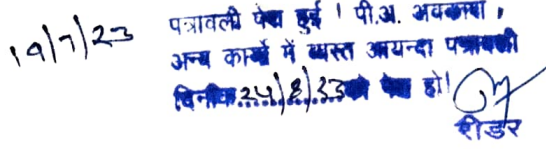 19/7/23 पत्रावली पेश हुई । पी.अ. अवकाश ।
अन्य कार्यो में व्यस्त आयन्दा पत्रावली
दिनांक 24/8/33 को पेश हो।
रीडर